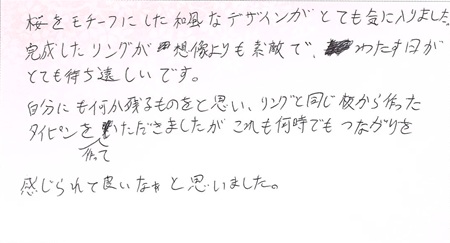 桜をモチーフにした和風なデザインがとても気に入りました
完成したリングが想像よりも素敵で、わたす日が
とても待ち遠しいです。
自分にも何か残るものをと思い、リングと同じ板から作った
タイピンを作っていただきましたがこれも何時でもつながりを
感じられて良いなぁと思いました。